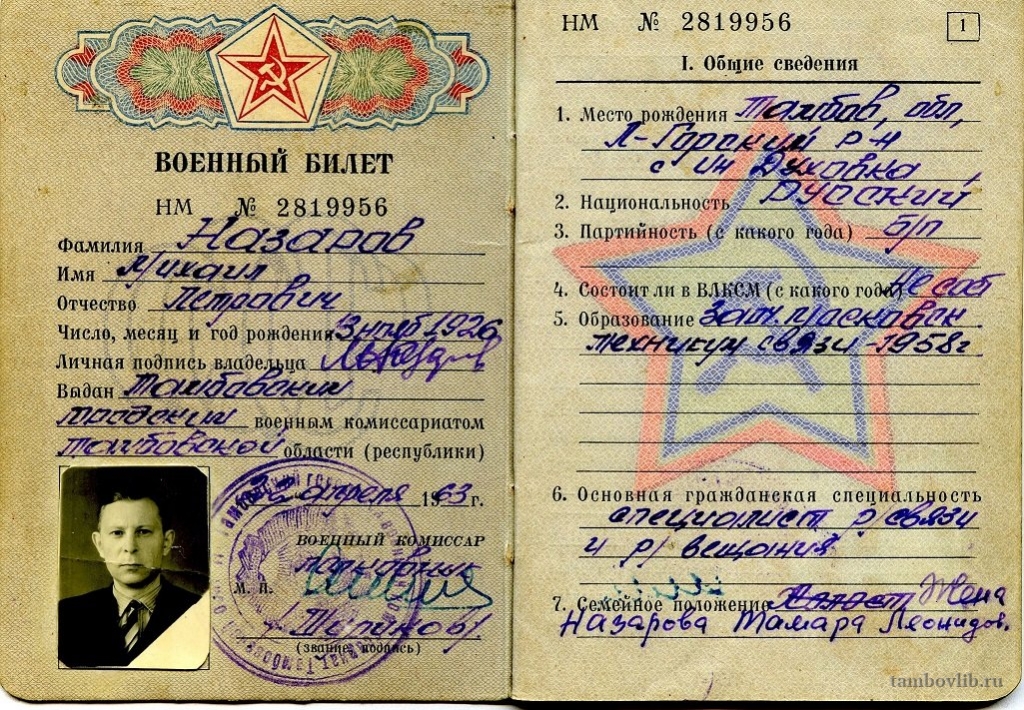 ВОЕННЫЙ БИЛЕТ
НМ № 2819956
Фамилия Назаров
Имя Михаил
Отчество Петрович
Число, месяц и год рождения 1926
Личная подпись владельца
Выдан Тамбовским
городским военным комиссариатом
Тамбовской области (республики)
апреля 1963 г.
ВОЕННЫЙ КОМИССАР
полковник
М. П.
(звание, подпись)
НМ № 2819956
1
I. Общие сведения
1. Место рождения Тамбов, обл,
Л-Горский р-н
с ин Духовка
2. Национальность Русский
3. Партийность (с какого года) б/п
4. Состоит ли в ВЛКСМ (с какого года) Не сост
5. Образование
техникум связи - 1958г
6. Основная гражданская специальность
специалист р/связи
и р/вещания
7. Семейное положение Холост Жена
Назарова Тамара Леонидов.
tambovlib.ru